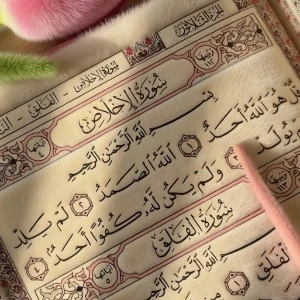 الجزء الثلاثون
سورة الإخلاص - الفلق -
سُورَةُ الإِخْلَاصِ
بِسْمِ اللَّهِ الرَّحْمَٰنِ الرَّحِيمِ
قُلْ هُوَ اللَّهُ أَحَدٌ ١ اللَّهُ الصَّمَدُ ٢ لَمْ يَلِدْ
يُولَدْ ٣ وَلَمْ يَكُن لَّهُ كُفُوًا أَحَدٌ ٤
سُورَةُ الْفَلَقِ
بِسْمِ اللَّهِ الرَّحْمَٰنِ
الْفَلَقِ ١